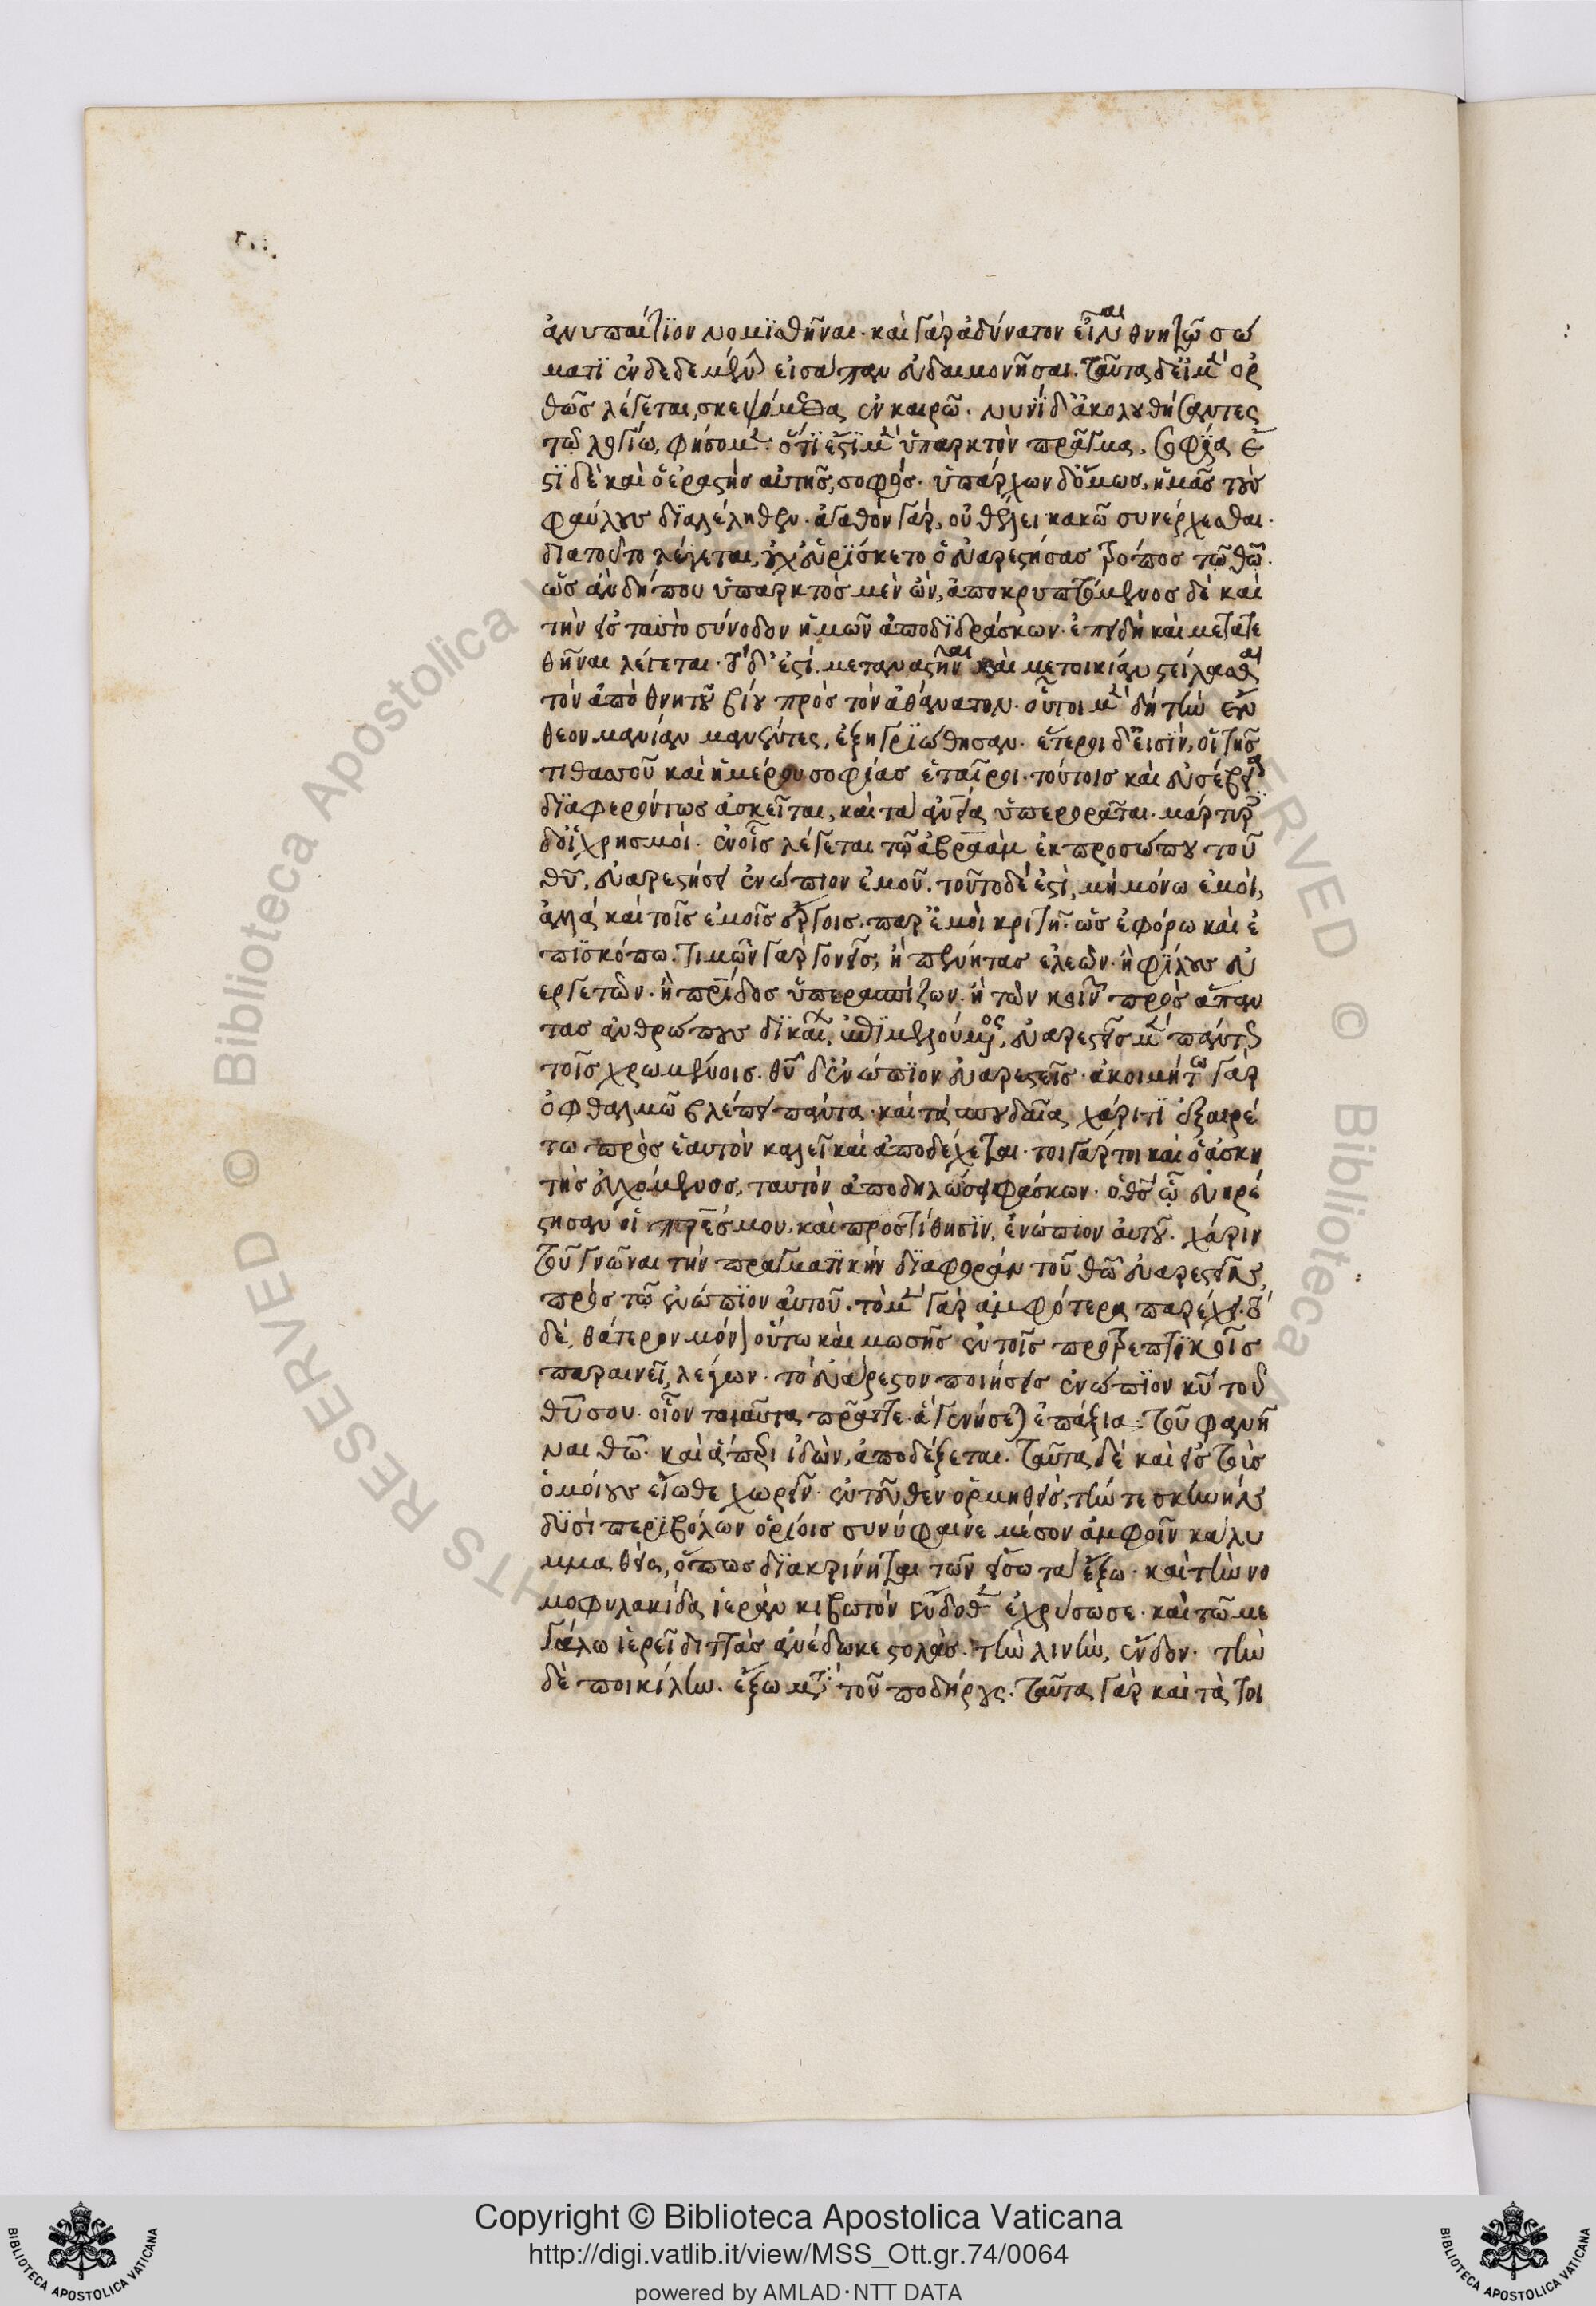 ἀνυπαίτϊον νομϊσθῆναι· καὶ γὰρ ἀδύνατον εἶναι θνητῷ σώ
ματϊ ἐνδεδεμένον εἰσάπαν εὐδαιμονῆσαι. ταῦτα δ εἰ μὲν ὀρ
θῶς λέγεται, σκεψόμεθα ἐν καιρῶ. νυνὶ δ' ἀκολουθήσαντες
τῷ λογίω, φήσομεν. ὅτϊ ἐστϊ μὲν ὕπαρκτον πρᾶγμα, σοφία ἔ
στϊ δὲ καὶ ὁ ἐραστὴς αὐτῆς, σοφός. ὑπάρχων δ' ὅμως, ἡμᾶς τοὺς
φαύλους δϊαλέληθεν. ἀγαθὸν γὰρ, οὐ θέλει κακῶ συνέρχεσθαι.
διατοῦτο λέγεται, οὐχ εὑρϊσκετο ὁ εὐαρεστήσας τρόπος τῷ θῶ.
ὡς ἂν δήπου ὑπαρκτὸς μὲν ὢν, ἀποκρυπτόμενος δὲ καὶ
τὴν εἰς ταυτὸ σύνοδον ἡμῶν ἀποδϊδράσκων. ἐπειδὴ καὶ μετατε
θῆναι λέγεται. τὸ δ' ἐστὶ. μεταναστῆναι καὶ μετοικίαν στείλασθαι
τὸν ἀπὸ θνητοῦ βίου πρὸς τὸν ἀθάνατον. οὗτοι μὲν δὴ τὴν ἔν
θεον μανίαν μανέντες, ἐξηγρϊώθησαν. ἕτεροι δ' εἰσϊν, οἱ τῆς
τιθασοῦ καὶ ἡμέρου σοφίας ἑταῖροι. τούτοις καὶ εὐσέβεια
δϊαφερόντως ἀσκεῖται, καὶ τὰ ἀνθρώπεια οὐχ ὑπερορᾶται. μάρτυρες
δ οἱ χρησμοὶ. ἐν οἷς λέγεται τῷ ἀβραὰμ ἐκ προσώπου τοῦ
θῦ, εὐαρέστησει ἐνώπιον ἐμοῦ. τοῦτο δέ ἐστὶ, μὴ μόνω ἐμοὶ,
ἀλλὰ καὶ τοῖς ἐμοῖς ἔργοις. παρ' ἐμοὶ κριτῆ. ὡς ἐφόρω καὶ ἐ
πϊσκόπω. τιμῶν γὰρ γονεῖς, ἢ πένητας ἐλεῶν. ἢ φϊλους εὐ
εργετῶν. ἢ πρίδος ὑπερασπίζων. ἢ τῶν κοινῶν πρὸς ἅπαν
τας ἀνθρώπους δϊκαίων, ἐπϊμελούμενος, εὐαρεστεῖς μὲν πάντως
τοῖς χρωμένοις. θῦ δ' ἐνώπϊον εὐαρεστεῖς. ἀκοιμήτω γὰρ
ὀφθαλμῶ βλέπει πάντα. καὶ τὰ σπουδαῖα χάριτϊ ἐξαιρέ
τω πρὸς ἑαυτὸν καλεῖ καὶ ἀποδέχεται. τοιγάρτοι καὶ ὁ ἀσκη
τὴς εὐχόμενος, ταυτὸν ἀποδηλώσει φάσκων. ὁ θς ᾧ εὐηρέ
στησαν οἱ πρες μου. καὶ προστίθησϊν, ἐνώπιον αὐτοῦ. χάριν
τοῦ γνῶναι τὴν πραγματϊκὴν δϊαφορὰν τοῦ θῶ εὐαρεστεῖν,
πρὸς τῷ ἐνώπϊον αὐτοῦ. τὸ μὲν γὰρ ἀμφότερα παρέχει. τὸ
δὲ, θάτερον μόνον. οὕτω καὶ μωσῆς ἐν τοῖς προτρεπτϊκοῖς
παραινεῖ, λέγων. τὸ εὐάρεστον ποιήσεις ἐνώπϊον κῦ τοῦ
θῦ σου. οἷον τοιαῦτα πρᾶττε. ἃ γενήσεται ἐπάξια τοῦ φανῆ
ναι θῶ. καὶ ἅπερ ἰδὼν, ἀποδέξεται. ταῦτα δὲ καὶ εἰς τοὺς
ὁμοίους εἴωθε χωρεῖν. ἐντεῦθεν ὁρμηθεὶς, τήν τε σκηνὴν
δϋσὶ περϊβόλων ὁρίοις συνύφαινε μέσον ἀμφοῖν κάλυ
μμα θεὶς, ὅπως δϊακρίνηται τῶν εἴσω τὰ ἔξω. καὶ τὴν νο
μοφυλακίδα ἱερὰν κιβωτὸν ἔνδοθεν ἐχρύσωσε. καὶ τῶ με
γάλω ἱερεῖ διττὰς ἀνέδωκε στολάς. τὴν λινῆν, ἔνδον. τὴν
δὲ ποικίλην. ἔξω μετὰ τοῦ ποδήρους. ταῦτα γὰρ καὶ τὰ τοι
Copyright © Biblioteca Apostolica Vaticana
http://digi.vatlib.it/view/MSS_Ott.gr.74/0064
powered by AMLAD·NTT DATA